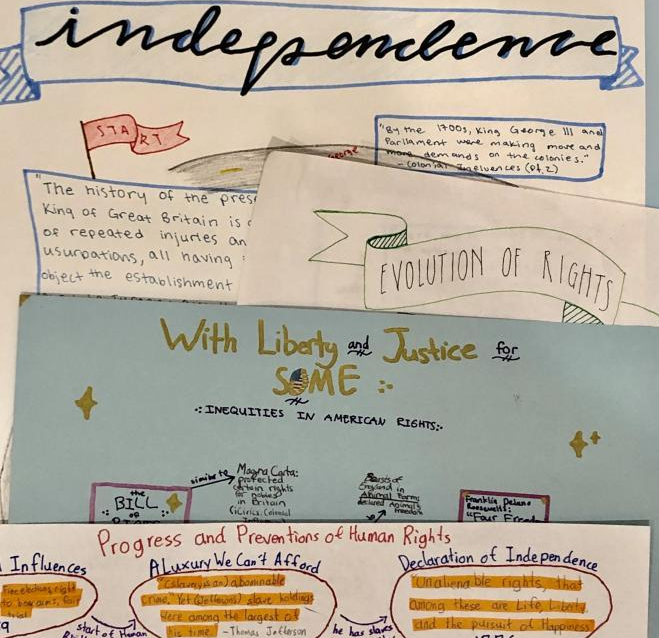 independence
START
"By the 1700s, King George III and
Parliament were making move and
more demands on the colonies."
- Colonial Influences (pt. 2)
George
"The history of the pres
King of Great Britain is
of repeated injuries an
usurpations, all having
object the establishment
EVOLUTION OF RIGHTS
With Liberty and Justice for
SOME
INEQUITIES IN AMERICAN RIGHTS
the
BILL
OF
similar to
Magna Carta:
protected
certain rights
for nobles
in Britain
England in
Animal Farm:
declared Animal
Franklin Delano
Roosevelt's:
Four
Progress and Preventions of Human Rights
Influences
Free elections, right
A Luxury We Can't Afford
"(Slavery is an) abominable
crime. Yet (Jefferson's) slave holdings
were among the largest of
his time. - Thomas Jefferson
start of Human
he has slaves
Declaration of Independence
"Unalienable rights, that
among these are Life, Liberty,
and the pursuit of Happiness